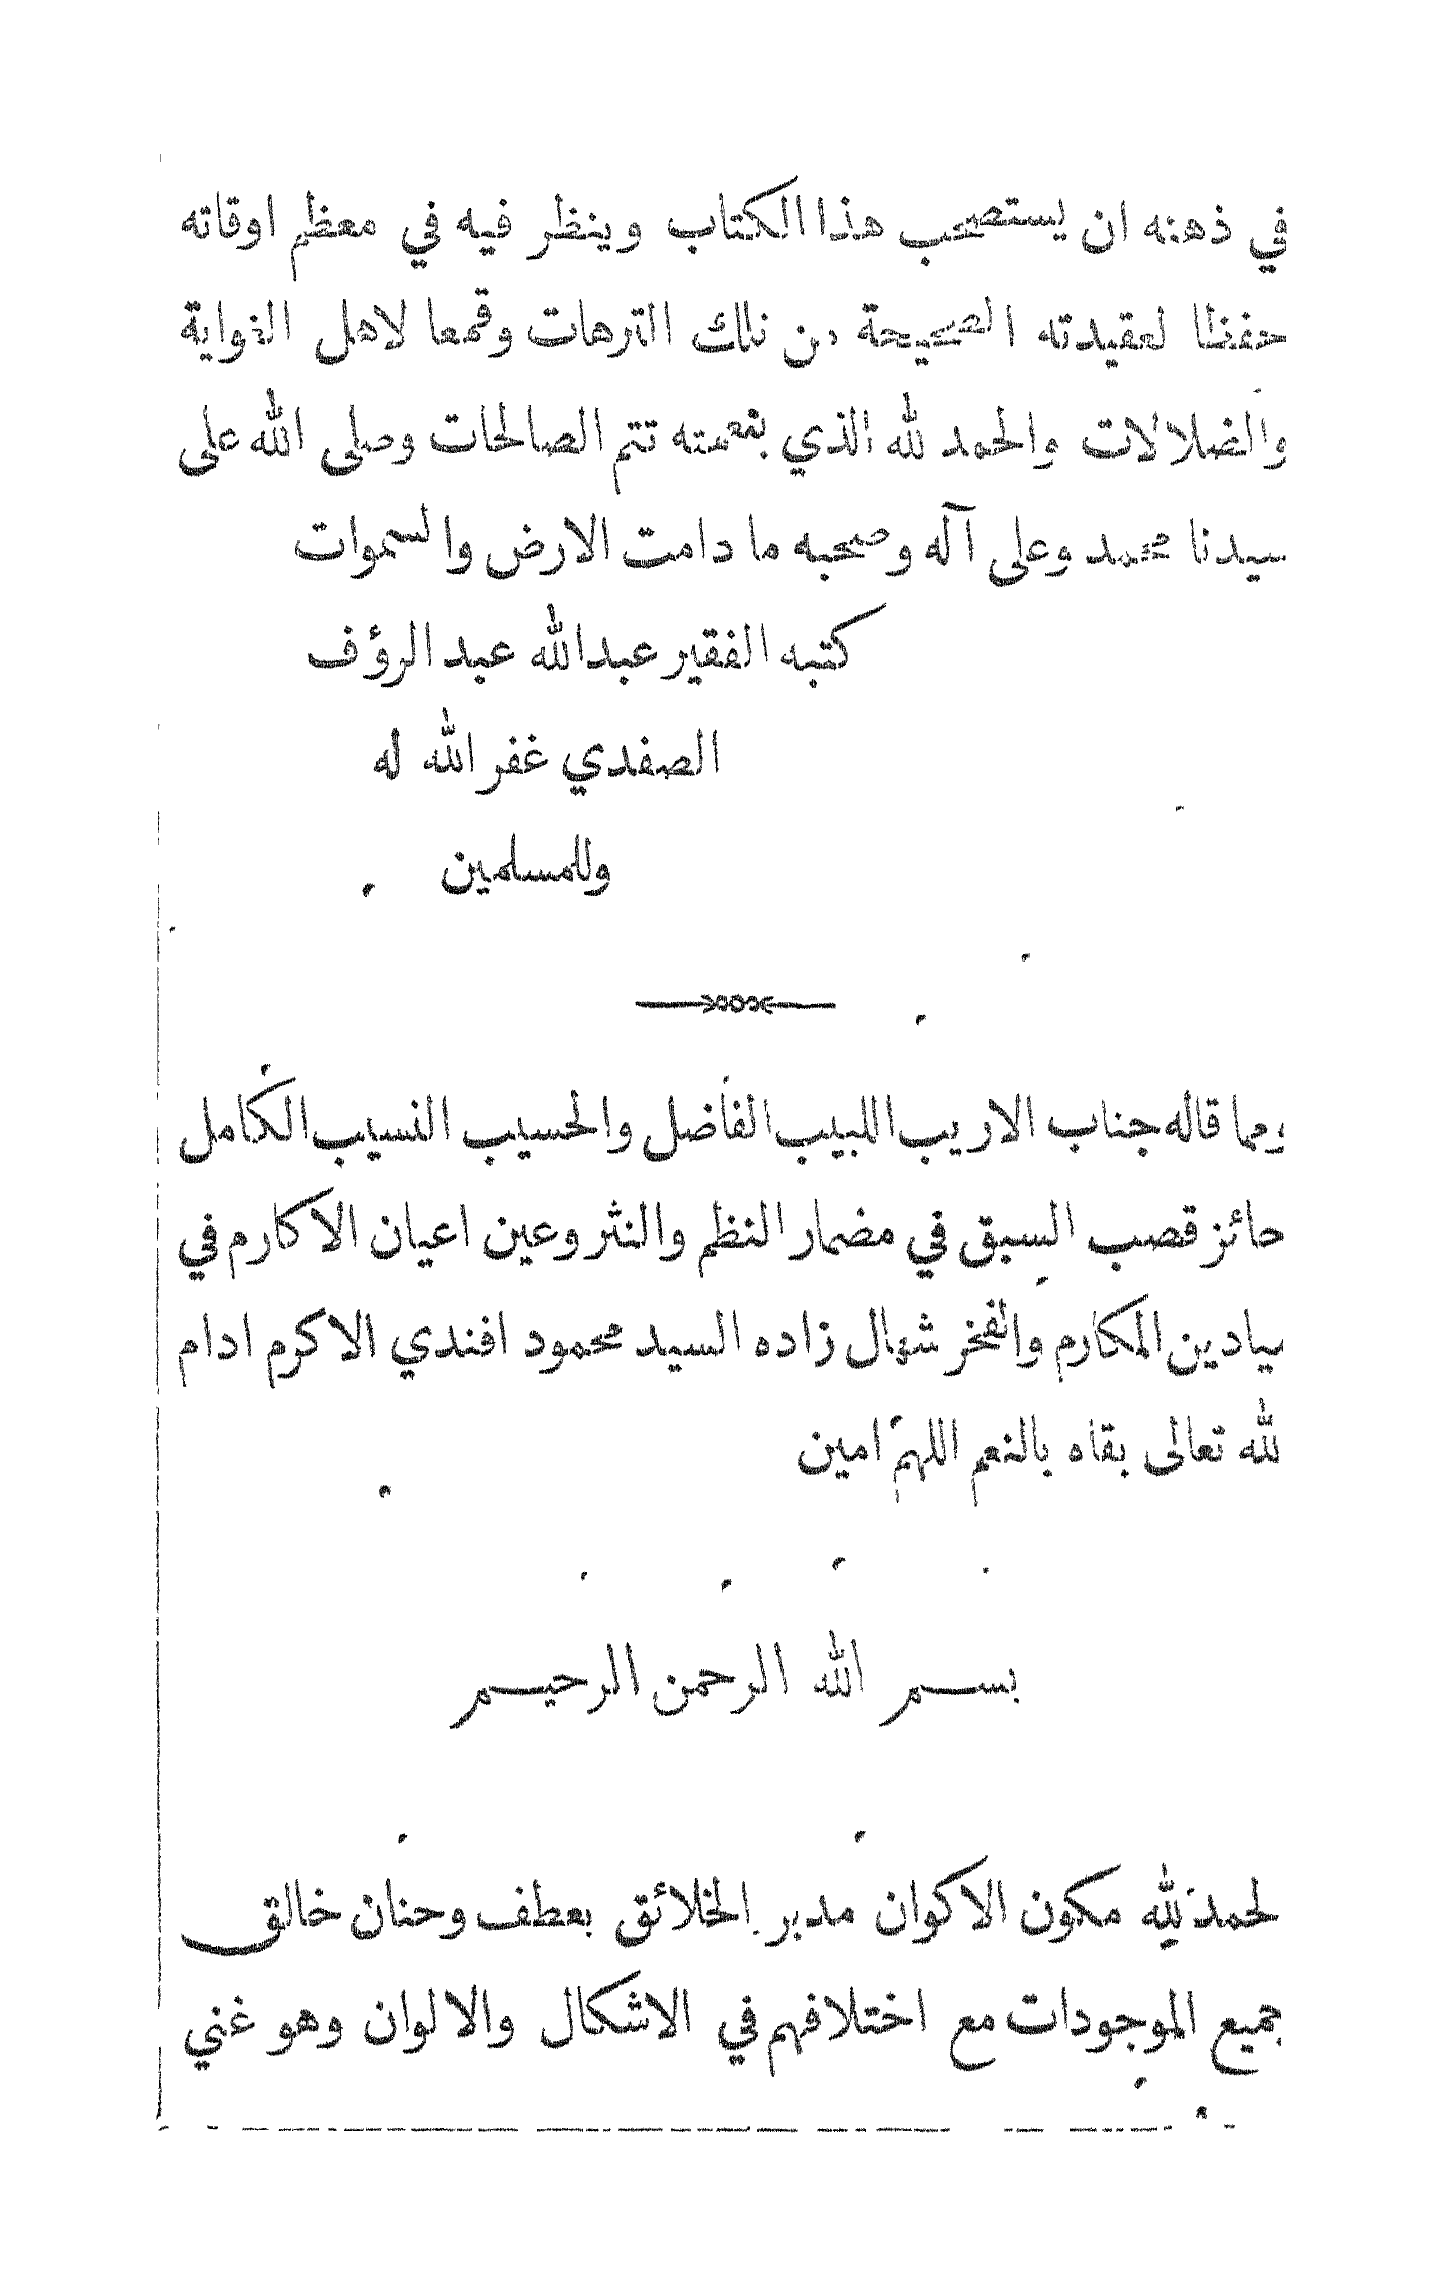 في ذهنه ان يستصحب هذا الكتاب وينظر فيه في معظم اوقاته
حفظا لعقيدته الصحيحة من تلك الترهات وقمعا لاهل الغواية
والضلالات والحمد لله الذي بنعمته تتم الصالحات وصلى الله على
سيدنا محمد وعلى آله وصحبه ما دامت الارض والسموات
كتبه الفقير عبدالله عبد الرؤف
الصفدي غفر الله له
وللمسلمين
ومما قاله جناب الاريب اللبيب الفاضل والحسيب النسيب الكامل
حائز قصب السبق في مضمار النظم والنثر وعين اعيان الاكارم في
ميادين المكارم والفخر شهال زاده السيد محمود افندي الاكرم ادام
لله تعالى بقاه بالنعم اللهم امين
بسم الله الرحمن الرحيم
لحمد لله مكون الاكوان مدبر الخلائق بعطف وحنان خالق
جميع الموجودات مع اختلافهم في الاشكال والالوان وهو غني